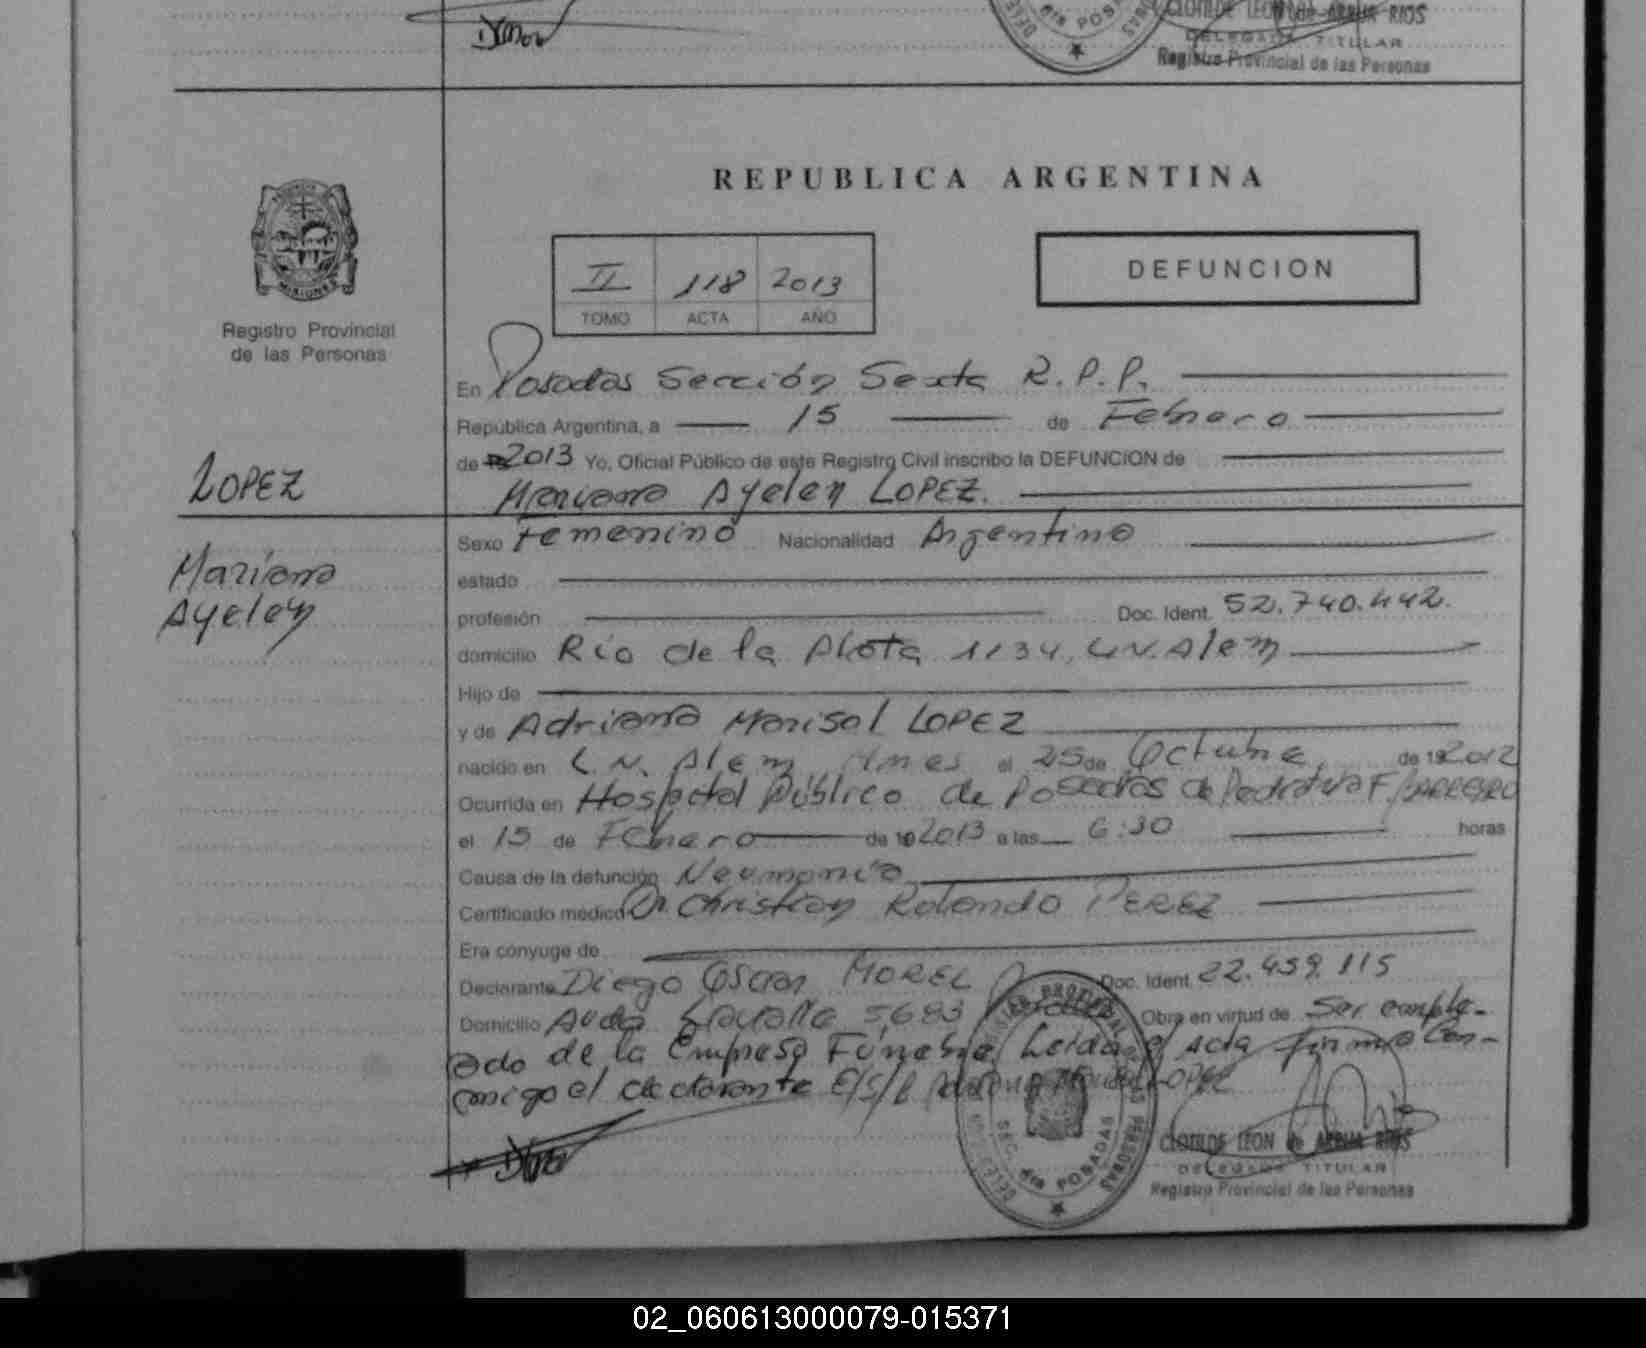 CLOTILDE LEON de ARRUA RIOS
DELEGADA TITULAR
Registro Provincial de las Personas
6ta POSADAS
REPUBLICA ARGENTINA
MISIONES
Registro Provincial
de las Personas
II 118 2013
TOMO ACTA AÑO
DEFUNCION
En Posadas Sección Sexta R.P.P.
República Argentina, a 15 de Febrero
de 2013 Yo, Oficial Público de este Registro Civil inscribo la DEFUNCION de
LOPEZ
Mariana Ayelen LOPEZ.
Mariana
Ayelen
Sexo Femenino Nacionalidad Argentina
estado
profesión Doc. Ident. 52.740.442.
domicilio Río de la Plata 1134, L.N. Alem
Hijo de
y de Adriana Marisol LOPEZ
nacido en L. N. Alem, Mnes el 25 de Octubre de 2012
Ocurrida en Hospital Público de Posadas de Pediatría F. BARREYRO
el 15 de Febrero de 2013 a las 6:30 horas
Causa de la defunción Neumonía
Certificado médico Dr. Christian Rolando PEREZ
Era conyuge de
Declarante Diego Oscar MOREL Doc. Ident. 22.459.115
Domicilio Avda 5683 Obra en virtud de Ser emple-
ado de la Empresa Fúnebre, Leída el Acta firma Con-
migo el declarante E/S/L Adriana LOPEZ
REGISTRO PROVINCIAL DE LAS PERSONAS
SEC. 6ta POSADAS
CLOTILDE LEON de ARRUA RIOS
DELEGADA TITULAR
Registro Provincial de las Personas
02_060613000079-015371